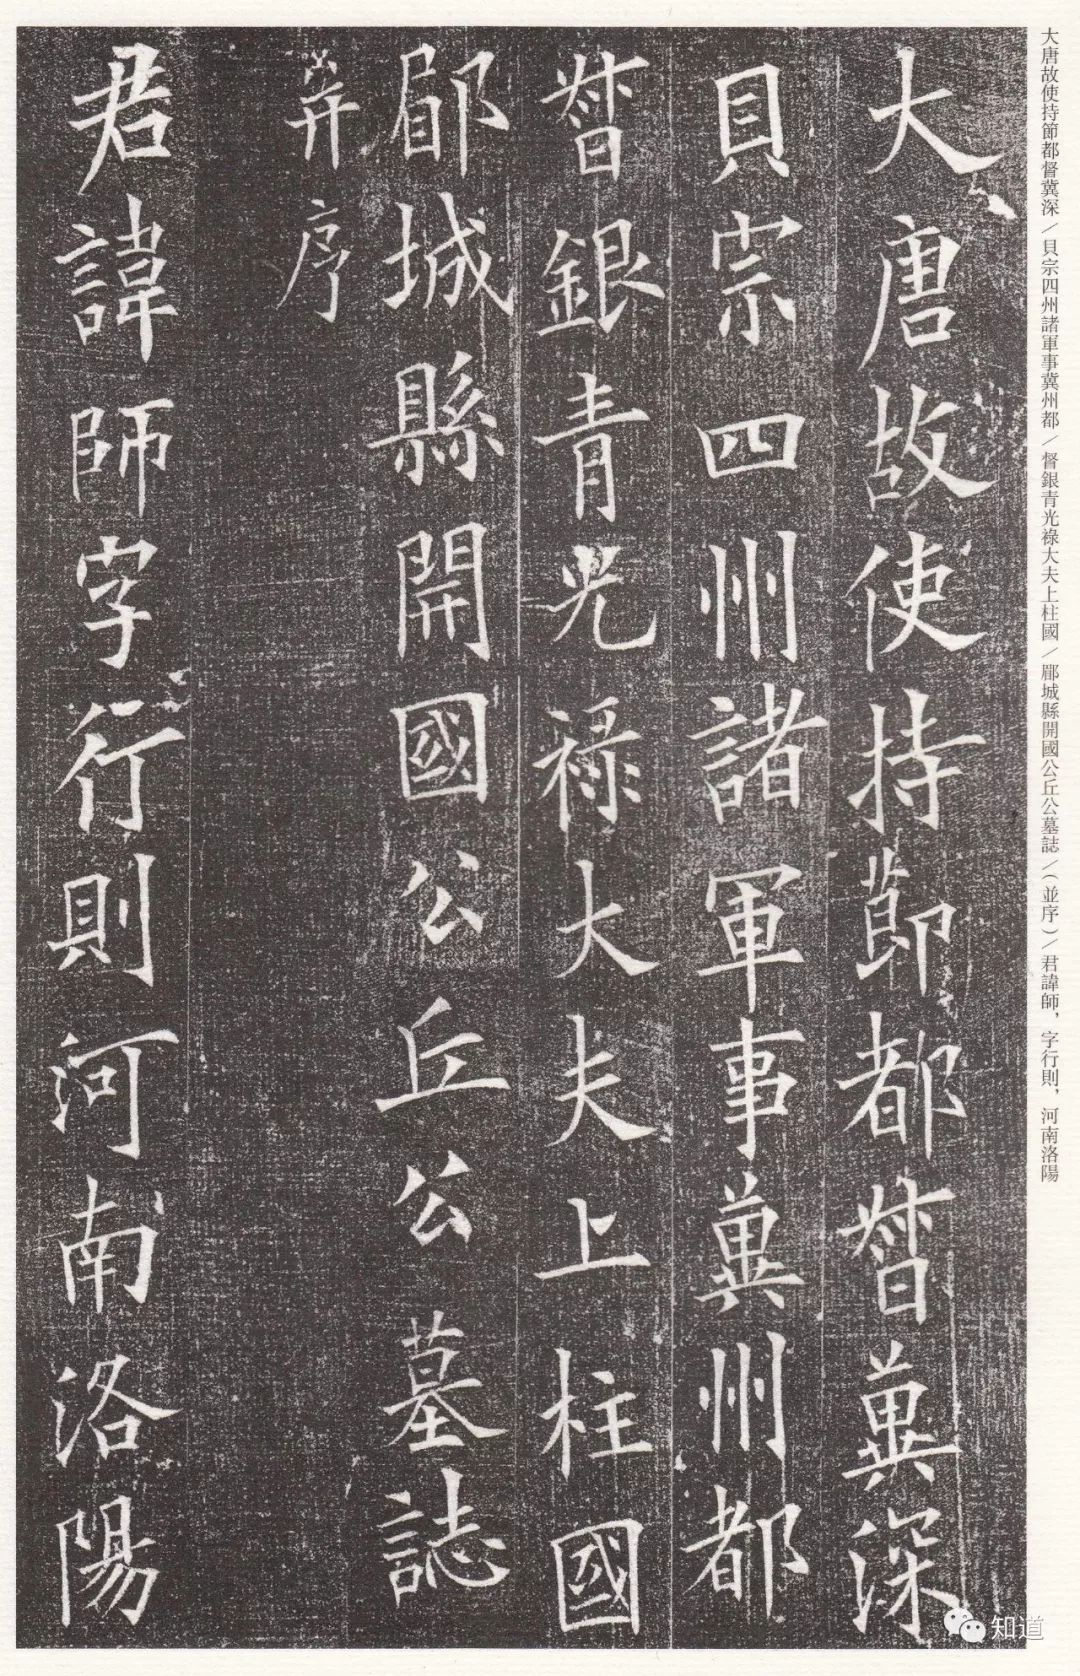 大唐故使持節都督冀深／貝宗四州諸軍事冀州都／督銀青光祿大夫上柱國／郿城縣開國公丘公墓誌／（並序）／君諱師，字行則，河南洛陽
大唐故使持節都督冀深
貝宗四州諸軍事冀州都
督銀青光祿大夫上柱國
郿城縣開國公丘公墓誌
并序
君諱師字行則河南洛陽
知道